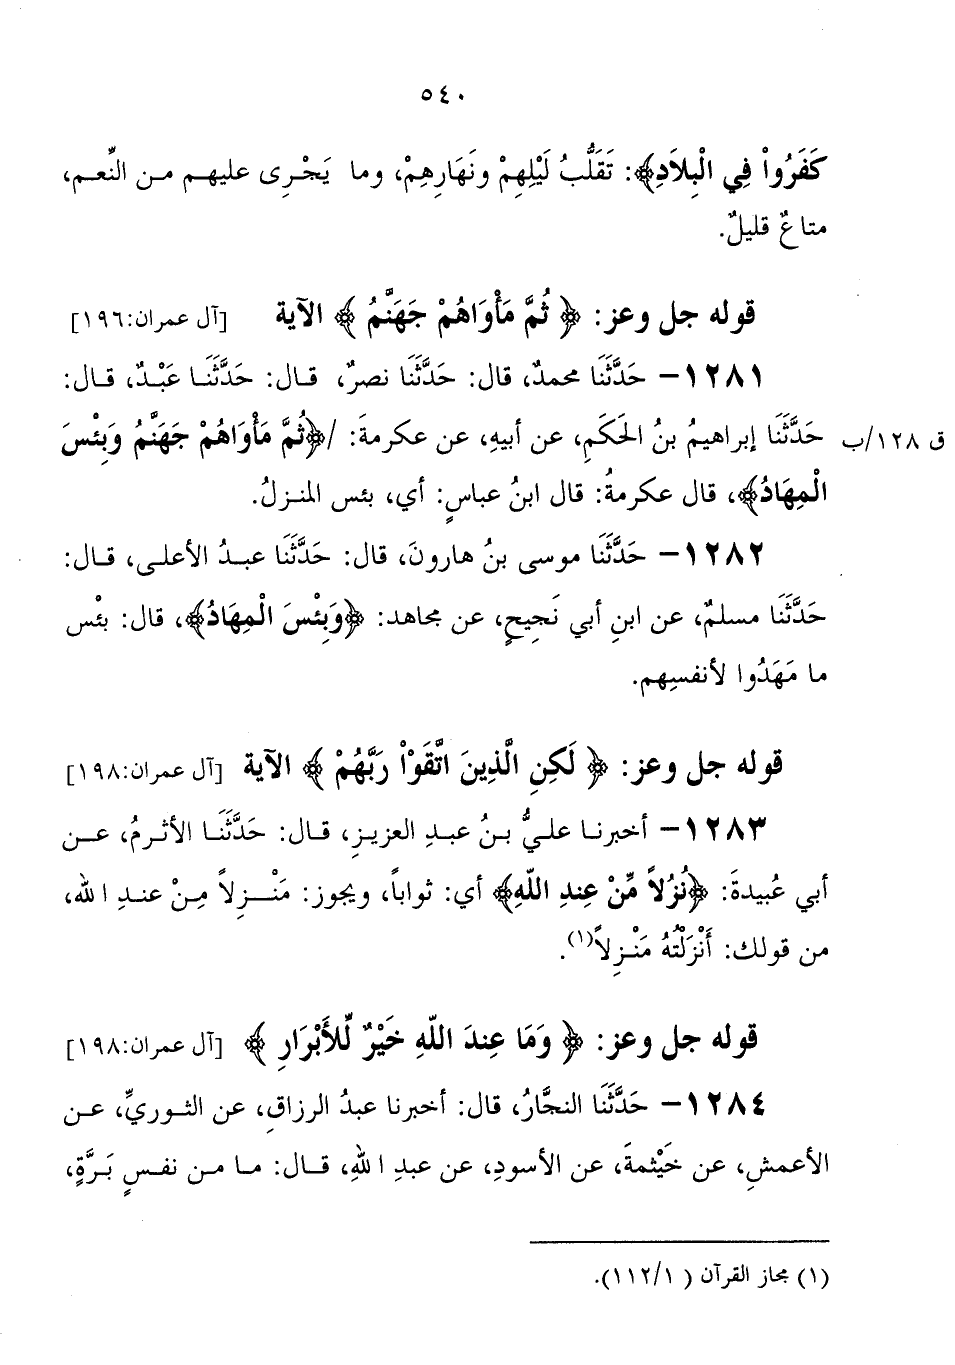 ٥٤٠
كَفَرُواْ فِي الْبِلاَدِ﴾: تَقَلُّبُ لَيْلِهِمْ ونَهَارِهِمْ، وما يَجْرِى عليهم من النِّعم،
متاعٌ قليلٌ.
قوله جل وعز: ﴿ ثُمَّ مَأْوَاهُمْ جَهَنَّمُ ﴾ الآية [آل عمران:١٩٦]
١٢٨١- حَدَّثَنَا محمدٌ، قال: حَدَّثَنَا نصرٌ، قال: حَدَّثَنَا عَبْدٌ، قال:
حَدَّثَنَا إبراهيمُ بنُ الحَكَمِ، عن أبيهِ، عن عكرمةَ: /﴿ثُمَّ مَأْوَاهُمْ جَهَنَّمُ وَبِئْسَ
ق ١٢٨/ب
الْمِهَادُ﴾، قال عكرمةُ: قال ابنُ عباسٍ: أي، بئس المنزلُ.
١٢٨٢- حَدَّثَنَا موسى بنُ هارونَ، قال: حَدَّثَنَا عبدُ الأعلى، قال:
حَدَّثَنَا مسلمٌ، عن ابنِ أبي نَجِيحٍ، عن مجاهد: ﴿وَبِئْسَ الْمِهَادُ﴾، قال: بئْس
ما مَهَدُوا لأنفسِهم.
قوله جل وعز: ﴿ لَكِنِ الَّذِينَ اتَّقَوْاْ رَبَّهُمْ ﴾ الآية [آل عمران:١٩٨]
١٢٨٣- أخبرنا عليُّ بنُ عبدِ العزيزِ، قال: حَدَّثَنَا الأثرمُ، عن
أبي عُبيدةَ: ﴿نُزُلاً مِّنْ عِندِ اللّهِ﴾ أي: ثواباً، ويجوز: مَنْزِلاً مِنْ عندِ الله،
من قولك: أَنْزَلْتُهُ مَنْزِلاً(١).
قوله جل وعز: ﴿ وَمَا عِندَ اللّهِ خَيْرٌ لِّلأَبْرَارِ ﴾ [آل عمران:١٩٨]
١٢٨٤- حَدَّثَنَا النجَّارُ، قال: أخبرنا عبدُ الرزاقِ، عن الثوريِّ، عن
الأعمشِ، عن خَيْثمةَ، عن الأسودِ، عن عبدِ اللهِ، قال: ما من نفسٍ بَرَّةٍ،
(١) مجاز القرآن ( ١١٢/١).